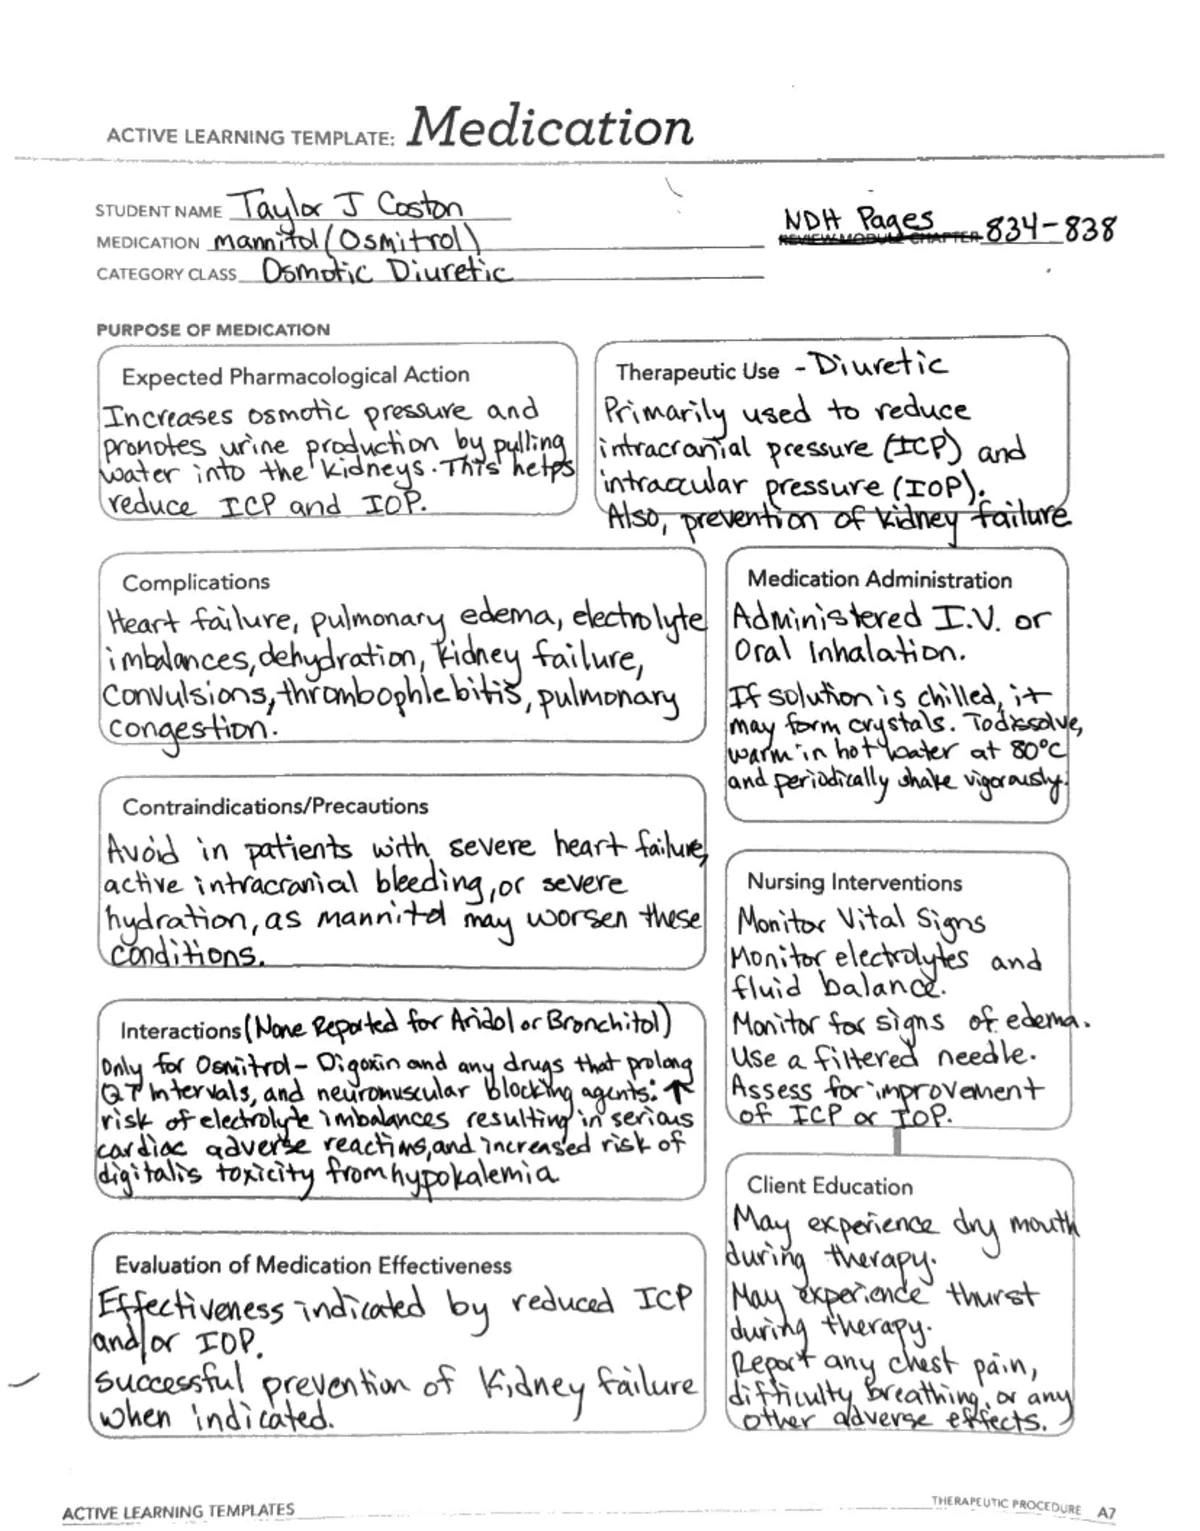 ACTIVE LEARNING TEMPLATE: Medication
STUDENT NAME Taylor J Coston
MEDICATION mannitol (Osmitrol)
CATEGORY CLASS Osmotic Diuretic
NDH Pages
REVIEW MODULE CHAPTER 834-838
PURPOSE OF MEDICATION
Expected Pharmacological Action
Increases osmotic pressure and
promotes urine production by pulling
water into the kidneys. This helps
reduce ICP and IOP.
Therapeutic Use - Diuretic
Primarily used to reduce
intracranial pressure (ICP) and
intraocular pressure (IOP).
Also, prevention of kidney failure
Complications
Heart failure, pulmonary edema, electrolyte
imbalances, dehydration, kidney failure,
convulsions, thrombophlebitis, pulmonary
congestion.
Medication Administration
Administered I.V. or
Oral Inhalation.
If solution is chilled, it
may form crystals. To dissolve,
warm in hot water at 80°C
and periodically shake vigorously.
Contraindications/Precautions
Avoid in patients with severe heart failure,
active intracranial bleeding, or severe
hydration, as mannitol may worsen these
conditions.
Nursing Interventions
Monitor Vital Signs
Monitor electrolytes and
fluid balance.
Monitor for signs of edema.
Use a filtered needle.
Assess for improvement
of ICP or IOP.
Interactions (None Reported for Aridol or Bronchitol)
Only for Osmitrol - Digoxin and any drugs that prolong
QT Intervals, and neuromuscular blocking agents: ↑
risk of electrolyte imbalances resulting in serious
cardiac adverse reactions, and increased risk of
digitalis toxicity from hypokalemia
Client Education
May experience dry mouth
during therapy.
May experience thurst
during therapy.
Report any chest pain,
difficulty breathing, or any
other adverse effects.
Evaluation of Medication Effectiveness
Effectiveness indicated by reduced ICP
and/or IOP.
Successful prevention of kidney failure
when indicated.
ACTIVE LEARNING TEMPLATES
THERAPEUTIC PROCEDURE A7